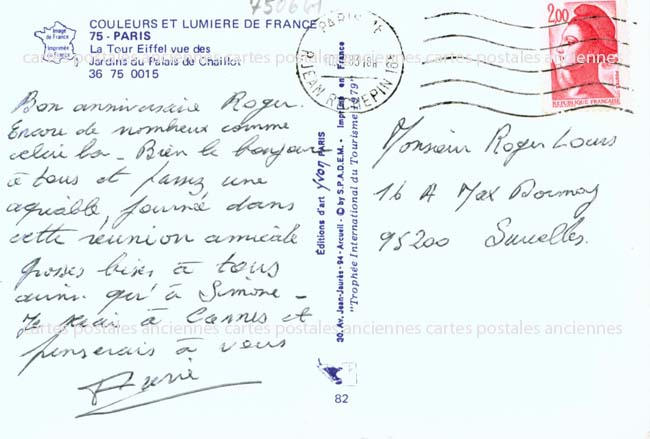 750661
COULEURS ET LUMIERE DE FRANCE
75 - PARIS
La Tour Eiffel vue des
Jardins du Palais de Chaillot
36 75 0015
Image de France
Imprimée en France
PARIS
R. JEAN RICHEPIN 16E
2,00
REPUBLIQUE FRANÇAISE
Bon anniversaire Roger.
Encore de nombreux comme
celui la - Bien le bonjour
à tous et passez une
agréable journée dans
cette réunion amicale
grosses bises à tous
ainsi qu'à Simone -
Je serai à Cannes et
penserais à vous
Monsieur Roger Louis
16 A Max Dormoy
95200 Sarcelles.
Editions d'art yvon PARIS
30, Av. Jean-Jaurès - 94 - Arcueil - © by S.P.A.D.E.M. - Imprimé en France
"Trophée International du Tourisme 1979"
82
cartes postales anciennes cartes postales anciennes cartes postales anciennes
cartes postales anciennes cartes postales anciennes cartes postales anciennes